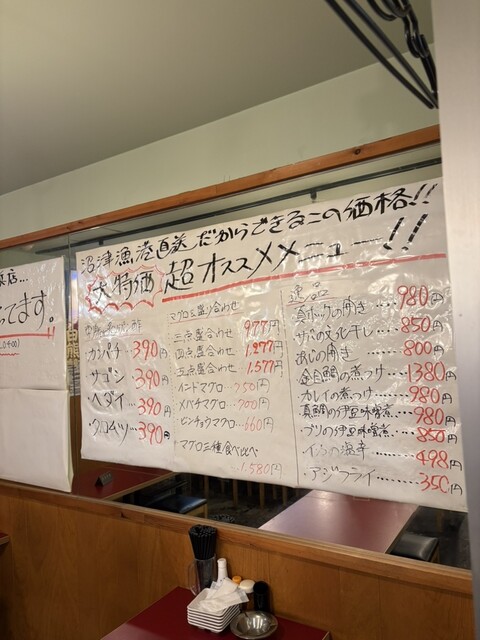 店...
てます。
沼津漁港直送だからできるこの価格!!
大特価 超オススメメニュー!!
カンパチ 390円
サゴシ 390円
ヘダイ 390円
クロムツ 390円
マグロ三種盛り合わせ
三点盛合わせ 977円
四点盛合わせ 1.277円
五点盛合わせ 1.577円
インドマグロ…750円
メバチマグロ…700円
ビンチョウマグロ…660円
マグロ三種食べ比べ
…1.580円
逸品
真ホッケの開き …… 980円
サバの文化干し …… 850円
あじの開き …… 800円
金目鯛の煮つけ …… 1380円
カレイの煮つけ …… 980円
真鯛の伊豆味噌煮… 980円
ブリの伊豆味噌煮… 850円
イカの塩辛 …… 498円
アジフライ …… 350円